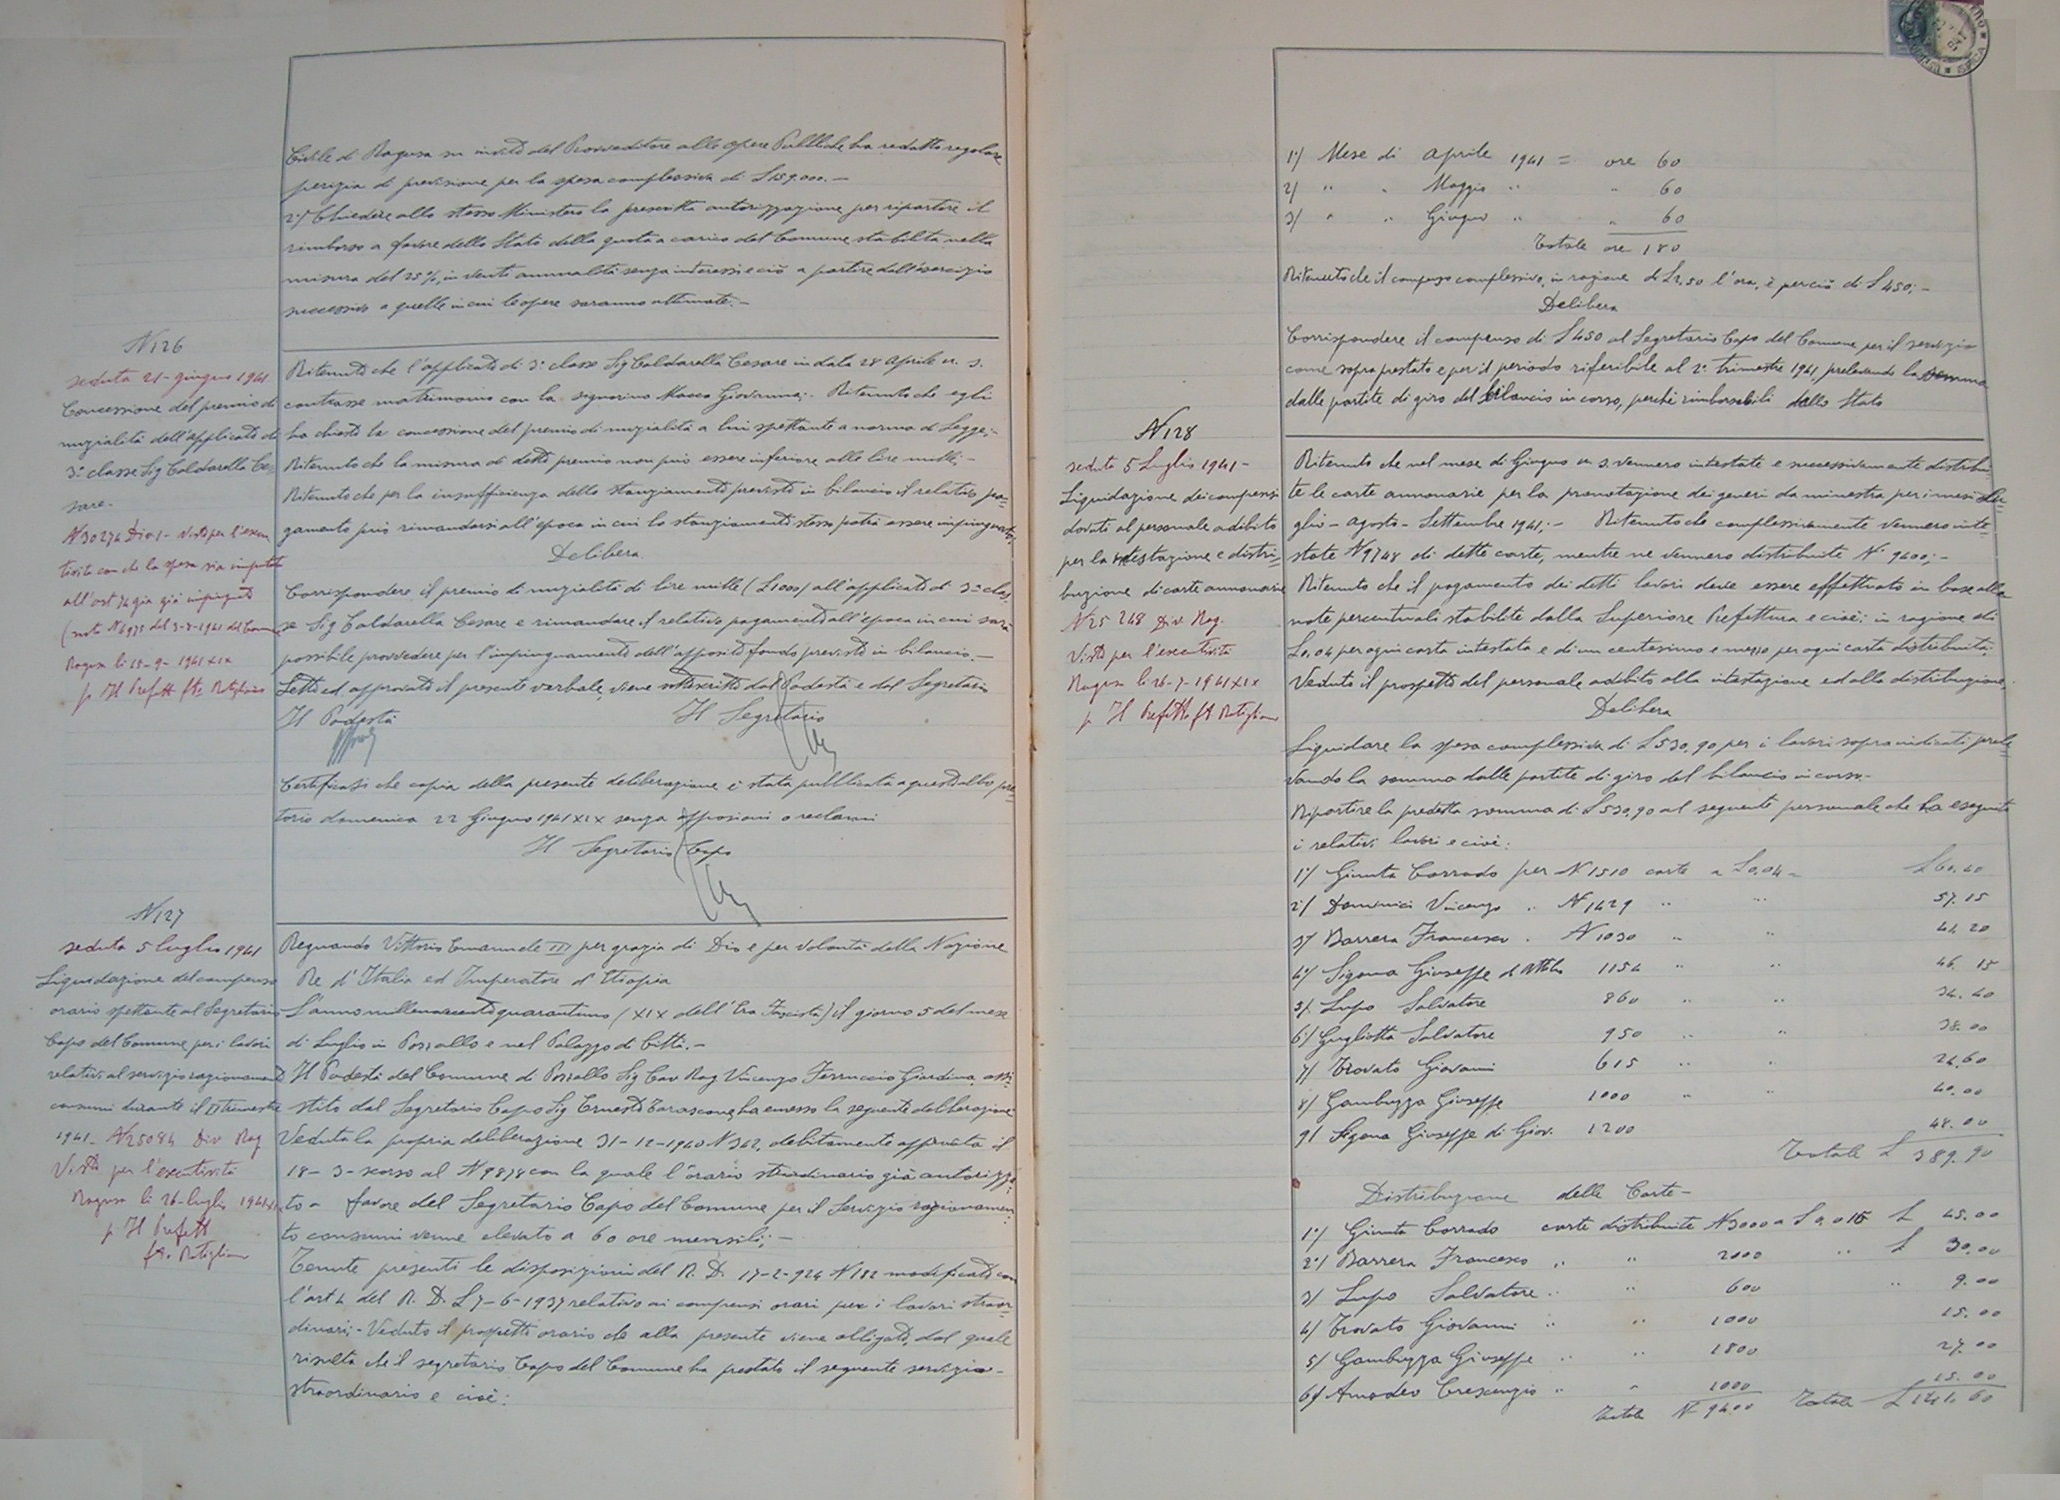 Civile di Ragusa su invito del Provveditore alle opere Pubbliche ha redatto regolare
perizia di previsione per la spesa complessiva di £ 159.000.-
2°/ Chiedere allo stesso Ministero la prescritta autorizzazione per ripartire il
rimborso a favore dello Stato della quota a carico del Comune stabilita nella
misura del 25%, in venti annualità senza interessi e ciò a partire dall'esercizio
successivo a quello in cui le opere saranno ultimate.-
N 126
seduta 21-giugno 1941
Concessione del premio di
nuzialità dell'applicato di
3ª classe Sig Caldarella Ce=
sare.
N 30274 Div 1- Visto per l'esecu
tività con che la spesa sia imputata
all'art 34 gia già impinguato
(nota N 6975 del 3-8-1941 del Comune
Ragusa li 18-9-1941 XIX
p. Il Prefetto fto Ratiglia
Ritenuto che l'applicato di 3ª classe Sig Caldarella Cesare in data 28 Aprile u. s.
contrasse matrimonio con la signorina Giovanna;- Ritenuto che egli
ha chiesto la concessione del premio di nuzialità a lui spettante a norma di Legge;-
Ritenuto che la misura di detto premio non può essere inferiore alle lire mille;-
Ritenuto che per la insufficienza dello stanziamento previsto in bilancio il relativo pa=
gamento può rimandarsi all'epoca in cui lo stanziamento stesso potrà essere impinguato;
Delibera
Corrispondere il premio di nuzialità di lire mille (£ 1000) all'applicato di 3ª clas
se Sig Caldarella Cesare e rimandare il relativo pagamento all'epoca in cui sarà
possibile provvedere per l'impinguamento dell'apposito fondo previsto in bilancio.-
Letto ed approvato il presente verbale, viene sottoscritto dal Podestà e dal Segretario
Il Podestà Il Segretario
Certificasi che copia della presente deliberazione è stata pubblicata a questo albo pre=
torio domenica 22 Giugno 1941 XIX senza opposizioni o reclami
Il Segretario Capo
N 127
seduta 5 luglio 1941
Liquidazione del compenso
orario spettante al Segretario
Capo del Comune per i lavori
relativi al servizio razionamento
consumi durante il II trimestre
1941- N 25084 Div Rag
Visto per l'esecutività
Ragusa li 26-luglio 1941 XIX
p. Il Prefetto
fto. Ratiglia
Regnando Vittorio Emanuele III per grazia di Dio e per volontà della Nazione
Re d'Italia ed Imperatore d'Etiopia
L'anno millenovecentoquarantuno (XIX dell'Era Fascista) il giorno 5 del mese
di Luglio in Pozzallo e nel Palazzo di Città.-
Il Podestà del Comune di Pozzallo Sig Cav Rag Vincenzo Ferruccio Giardina, assi=
stito dal Segretario Capo Sig Ernesto Tarascone, ha emesso la seguente deliberazione
Veduta la propria deliberazione 31-12-1940 N 362, debitamente approvata il
18-3-scorso al N 9878 con la quale l'orario straordinario già autorizza=
to a favore del Segretario Capo del Comune per il Servizio razionamen=
to consumi venne elevato a 60 ore mensili;-
Tenute presenti le disposizioni del R. D. 17-2-924 N 182 modificato con
l'art 4 del R. D. L 7-6-1937 relativo ai compensi orari per i lavori straor=
dinari;- Veduto il prospetto orario che alla presente viene allegato, dal quale
risulta che il segretario Capo del Comune ha prestato il seguente servizio
straordinario e cioè:
1°/ Mese di Aprile 1941 = ore 60
2/ " " Maggio " " 60
3/ " " Giugno " " 60
Totale ore 180
Ritenuto che il compenso complessivo, in ragione di £ 2,50 l'ora, è perciò di £ 450;-
Delibera
Corrispondere il compenso di £ 450 al Segretario Capo del Comune per il servizio
come sopra prestato e per il periodo riferibile al 2° trimestre 1941, prelevando la somma
dalle partite di giro del bilancio in corso, perchè rimborsabili dallo Stato
N 128
seduta 5 Luglio 1941-
Liquidazione dei compensi
dovuti al personale adibito
per la intestazione e distri=
buzione di carte annonarie
N 25 248 Div. Rag.
Visto per l'esecutività
Ragusa li 26-7-1941 XIX
p. Il Prefetto fto Ratiglia
Ritenuto che nel mese di Giugno u. s. vennero intestate e successivamente distribui
te le carte annonarie per la prenotazione dei generi da minestra per i mesi Lu=
glio - Agosto - Settembre 1941;- Ritenuto che complessivamente vennero inte=
state N 9748 di dette carte, mentre ne vennero distribuite N° 9400;-
Ritenuto che il pagamento dei detti lavori deve essere effettuato in base alle
note percentuali stabilite dalla Superiore Prefettura e cioè: in ragione di
£ 0,04 per ogni carta intestata e di un centesimo e mezzo per ogni carta distribuita;
Veduto il prospetto del personale adibito alla intestazione ed alla distribuzione;
Delibera
Liquidare la spesa complessiva di £ 530,90 per i lavori sopra indicati prele
vando la somma dalle partite di giro del bilancio in corso-
Ripartire la predetta somma di £ 530,90 al seguente personale che ha eseguito
i relativi lavori e cioè:
1°/ Giunta Corrado per N 1510 carte a £ 0,04= £ 60.40
2°/ Dominici Vincenzo " N 1429 " " 57.15
3°/ Barrera Francesco " N 1030 " " 41.20
4°/ Sigona Giuseppe di Attilio 1154 " " 46.15
5/ Lupo Salvatore 860 " " 34.40
6°/ Gugliotta Salvatore 950 " " 38.00
7/ Trovato Giovanni 615 " " 24,60
8/ Gambuzza Giuseppe 1000 " " 40.00
9/ Sigona Giuseppe di Giov. 1200 48.00
Totale £ 389.90
Distribuzione delle Carte-
1°/ Giunta Corrado carte distribuite N 3000 a £ 0,015 £ 45.00
2°/ Barrera Francesco " " 2000 " £ 30,00
3/ Lupo Salvatore " " 600 " 9.00
4/ Trovato Giovanni " " 1000 15.00
5/ Gambuzza Giuseppe " " 1800 27.00
6°/ Amodeo Crescenzio " " 1000 15.00
Totale N 9400 Totale £ 141.00